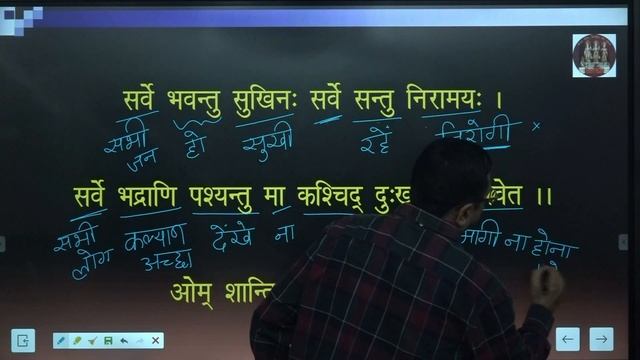 सर्वे भवन्तु सुखिनः सर्वे सन्तु निरामयः ।
सभी जन हो सुखी रहें
सर्वे भद्राणि पश्यन्तु मा कश्चिद्
सभी लोग कल्याण अच्छा देखे ना भागी ना होना
ओम्